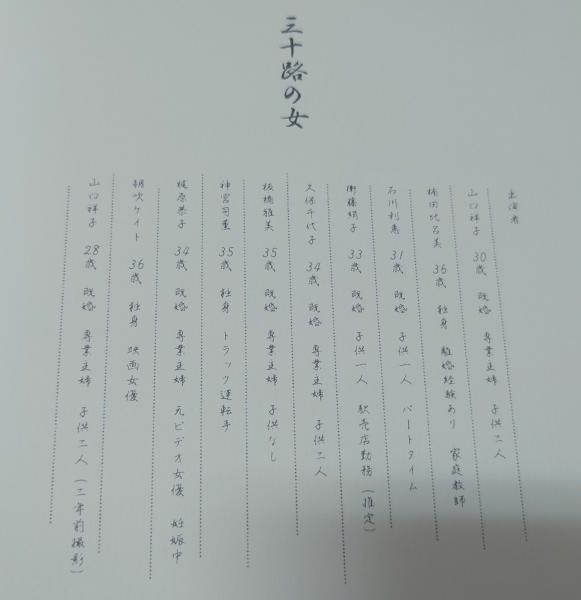 三十路の女
主演者
山口祥子 30歳 既婚 専業主婦 子供二人
楠田比呂美 36歳 独身 離婚経験あり 家庭教師
石川利恵 31歳 既婚 子供一人 パートタイム
衛藤絹子 33歳 既婚 子供一人 駅売店勤務(推定)
久保千代子 34歳 既婚 専業主婦 子供二人
板橋雅美 35歳 既婚 専業主婦 子供なし
神宮司菫 35歳 独身 トラック運転手
梶原恭子 34歳 既婚 専業主婦 元ビデオ女優 妊娠中
朝吹ケイト 36歳 独身 映画女優
山口祥子 28歳 既婚 専業主婦 子供二人(二年前撮影)